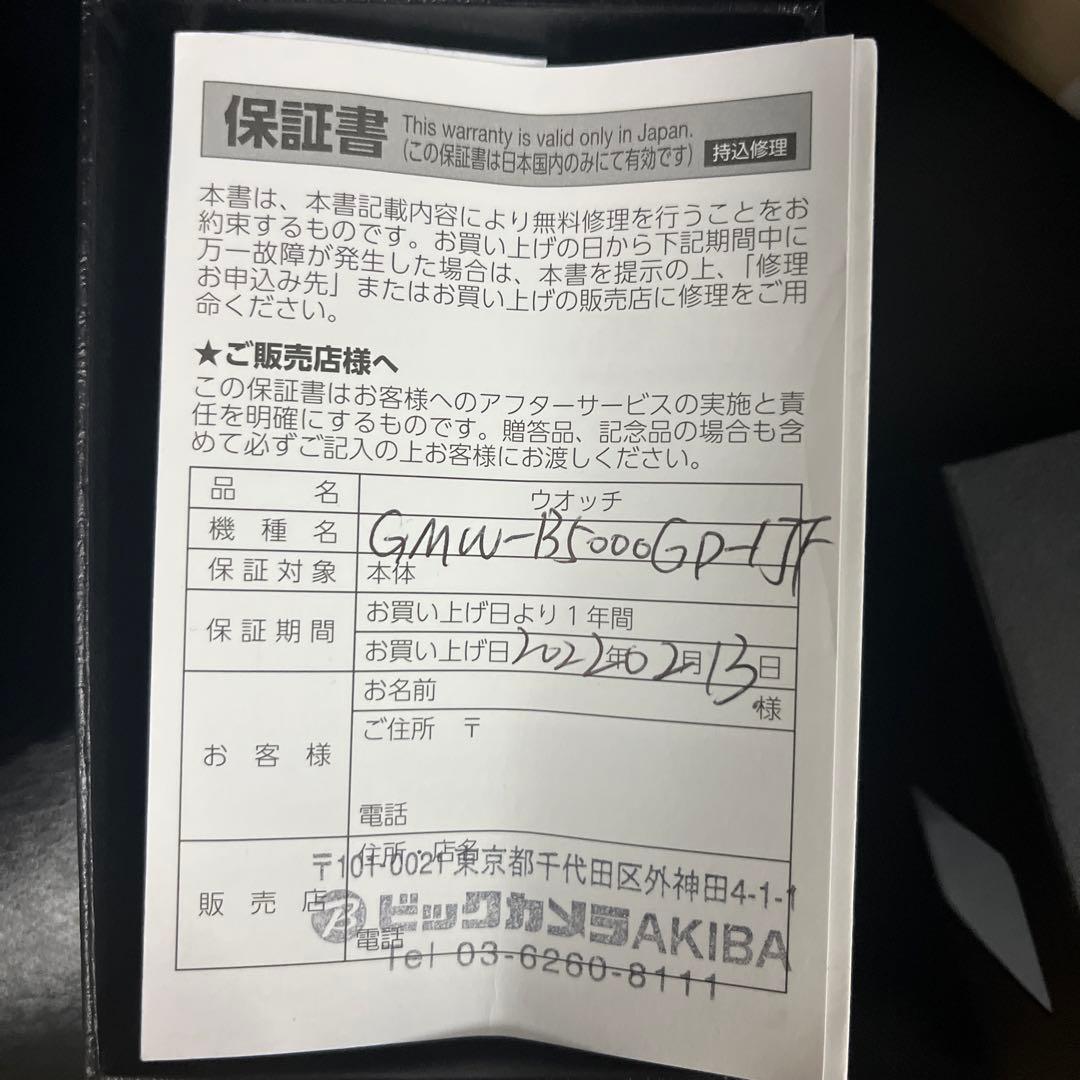 保証書
This warranty is valid only in Japan.
(この保証書は日本国内のみにて有効です)
持込修理
本書は、本書記載内容により無料修理を行うことをお
約束するものです。お買い上げの日から下記期間中に
万一故障が発生した場合は、本書を提示の上、「修理
お申込み先」またはお買い上げの販売店に修理をご用
命ください。
★ご販売店様へ
この保証書はお客様へのアフターサービスの実施と責
任を明確にするものです。贈答品、記念品の場合も含
めて必ずご記入の上お客様にお渡しください。
品名 ウオッチ
機種名 GMW-B5000GD-1JF
保証対象 本体
保証期間 お買い上げ日より1年間
お買い上げ日 2022年02月13日
お客様 お名前 様
ご住所 〒
電話
販売店 住所・店名
〒101-0021東京都千代田区外神田4-1-1
ビックカメラAKIBA
電話
Tel 03-6260-8111